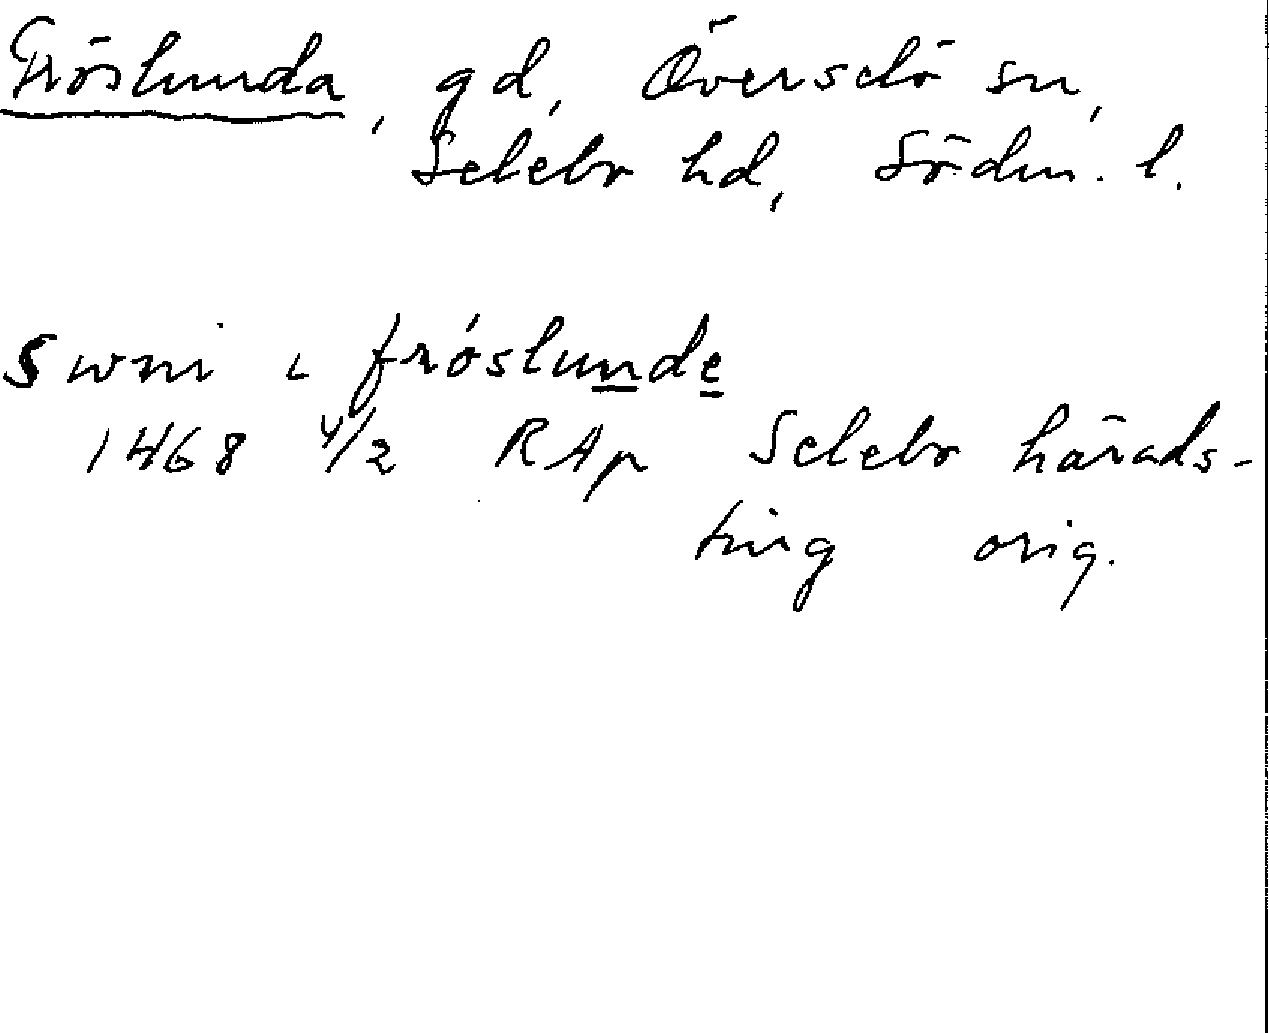 Fröslunda, gd, Överselö sn,
Selebo hd, Södm. l.
Swni i fróslunde
1468 4/2 RAp Selebo härads-
ting orig.